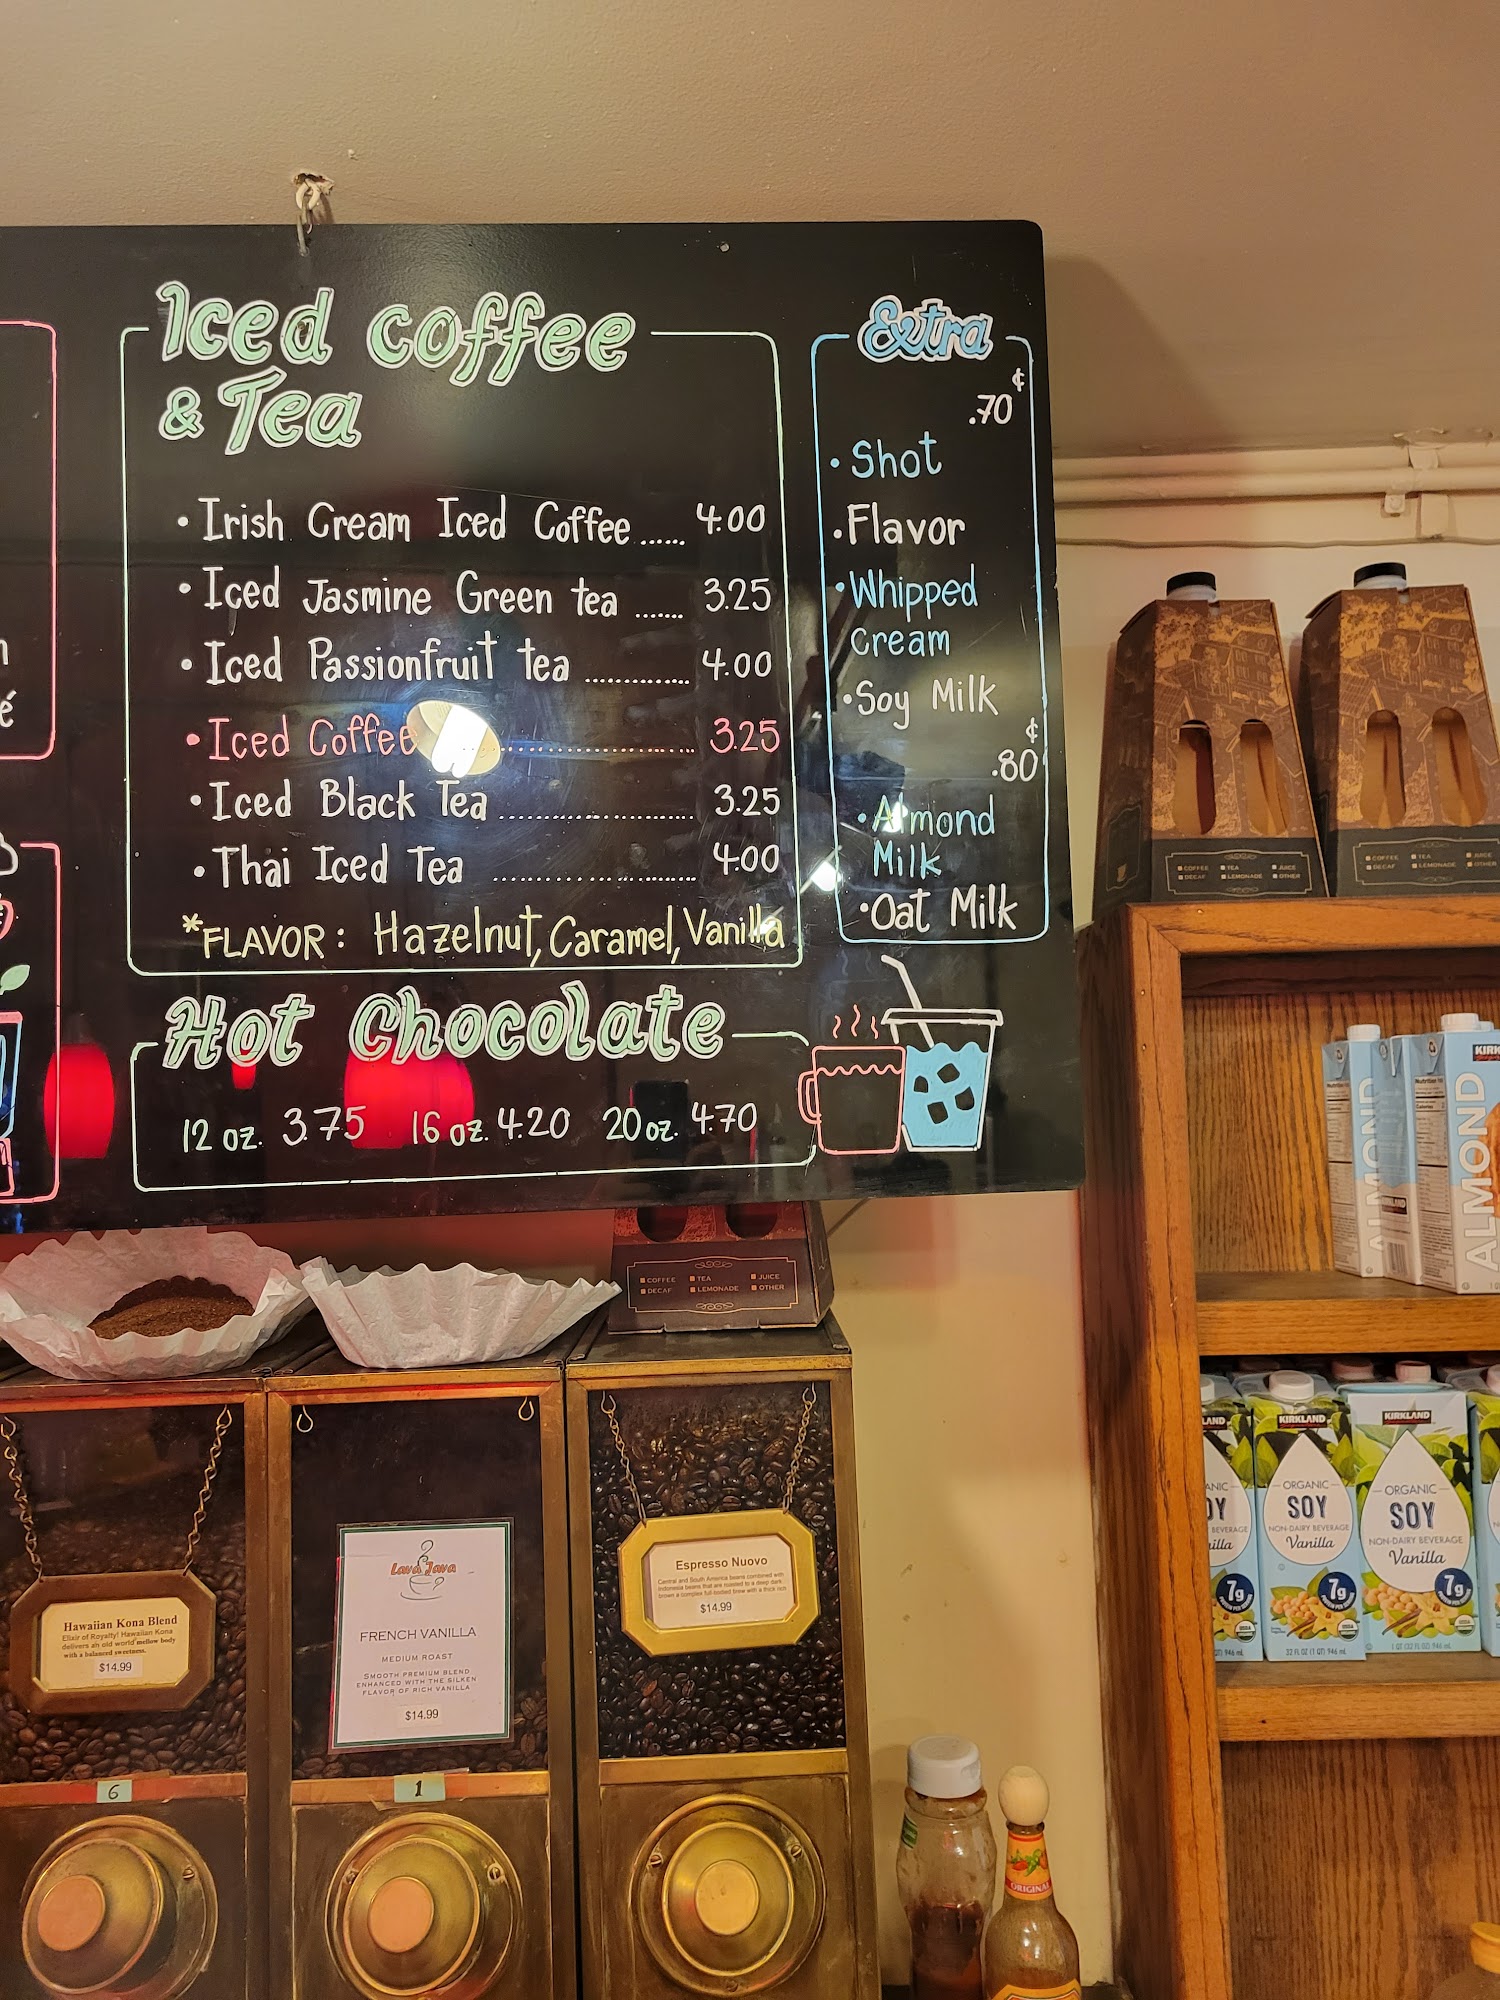 Iced coffee
& Tea
• Irish Cream Iced Coffee ...... 4.00
• Iced Jasmine Green tea ....... 3.25
• Iced Passionfruit tea .............. 4.00
• Iced Coffee ........................... 3.25
• Iced Black Tea ........................... 3.25
• Thai Iced Tea ........................... 4.00
*FLAVOR: Hazelnut, Caramel, Vanilla
Extra
¢
.70
• Shot
• Flavor
• Whipped
Cream
• Soy Milk
¢
.80
• Almond
Milk
• Oat Milk
Hot Chocolate
12 oz. 3.75 16 oz. 4.20 20 oz. 4.70
é
COFFEE TEA JUICE
DECAF LEMONADE OTHER
COFFEE TEA JUICE
DECAF LEMONADE OTHER
COFFEE TEA JUICE
DECAF LEMONADE OTHER
Hawaiian Kona Blend
Elixir of Royalty! Hawaiian Kona
delivers an old world mellow body
with a balanced sweetness.
$14.99
6
Lava Java
FRENCH VANILLA
MEDIUM ROAST
SMOOTH PREMIUM BLEND
ENHANCED WITH THE SILKEN
FLAVOR OF RICH VANILLA
$14.99
1
Espresso Nuovo
Central and South America beans combined with
Indonesia beans that are roasted to a deep dark
brown a complex full-bodied brew with a thick rich
$14.99
ORIGINAL
ALMOND
KIRK
ALMOND
KIRKLAND
ORGANIC
SOY
NON-DAIRY BEVERAGE
Vanilla
7g
32 FL OZ (1 QT) 946 mL
KIRKLAND
ORGANIC
SOY
NON-DAIRY BEVERAGE
Vanilla
7g
1 QT (32 FL OZ) 946 mL